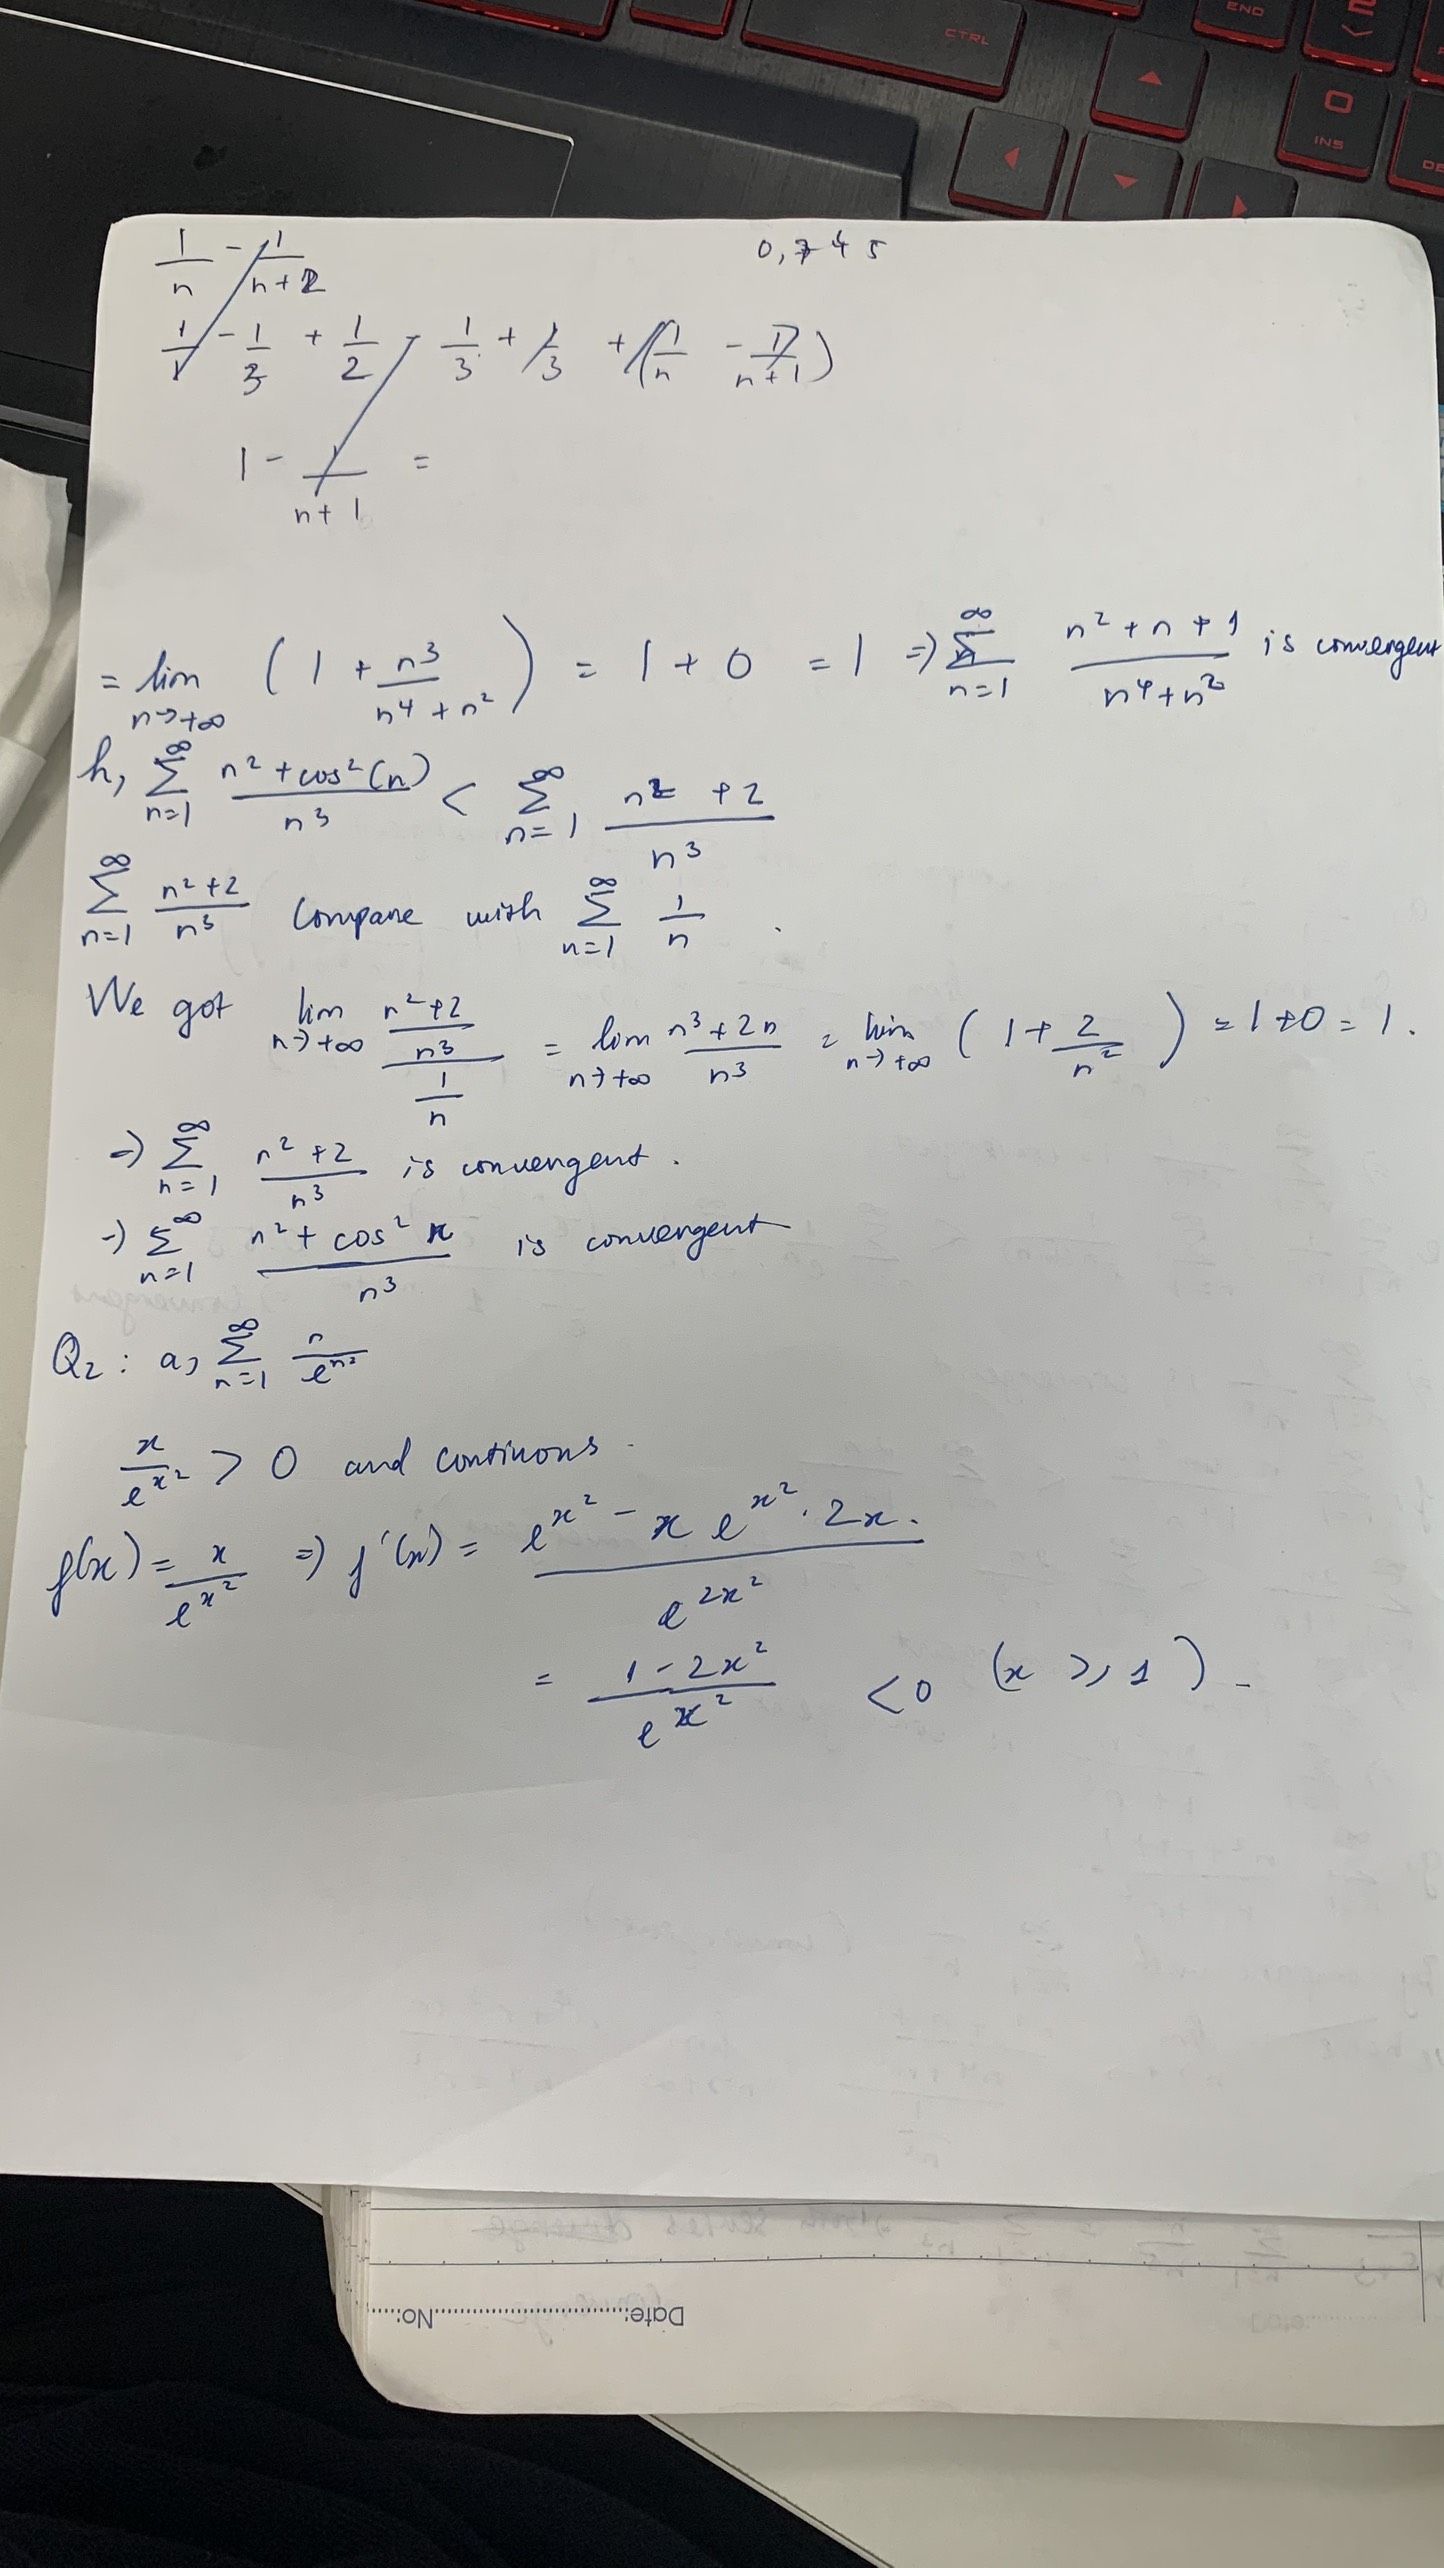 CTRL
END
2
0
INS
DE
1/n - 1/(n+2)
0,745
1/1 - 1/3 + 1/2 - 1/3 + 1/3 + (1/n - 1/(n+1))
1 - 1/(n+1) =
= lim n→+∞ (1 + n³/(n⁴+n²)) = 1 + 0 = 1 ⇒ ∞ Σ n=1 (n²+n+1)/(n⁴+n²) is convergent
h, ∞ Σ n=1 (n²+cos²(n))/n³ < ∞ Σ n=1 (n²+2)/n³
∞ Σ n=1 (n²+2)/n³ Compare with ∞ Σ n=1 1/n .
We got lim n→+∞ ((n²+2)/n³)/(1/n) = lim n→+∞ (n³+2n)/n³ = lim n→+∞ (1 + 2/n²) = 1+0 = 1.
⇒ ∞ Σ n=1 (n²+2)/n³ is convergent.
⇒ ∞ Σ n=1 (n²+cos² n)/n³ is convergent
Q2: a, ∞ Σ n=1 n/e^(n²)
x/e^(x²) > 0 and continous.
f(x) = x/e^(x²) ⇒ f'(x) = (e^(x²) - x e^(x²) . 2x.)/e^(2x²)
= (1-2x²)/e^(x²) < 0 (x ≥ 1).
Date: No: